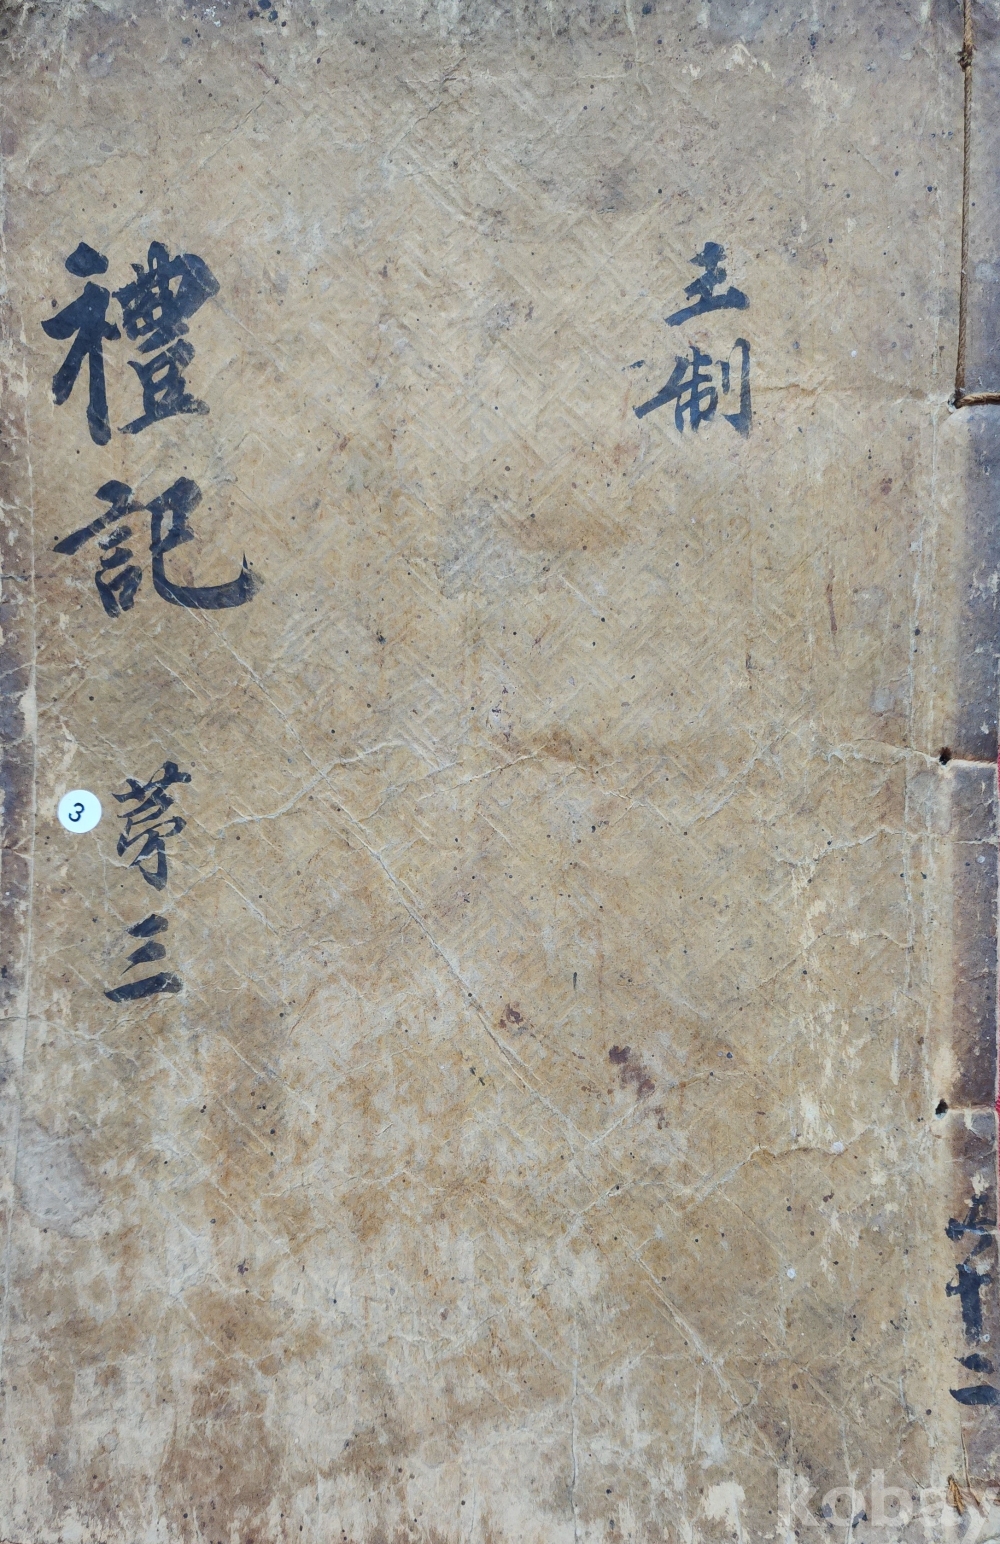 共十二
王制
禮記 苐三
3
kobay